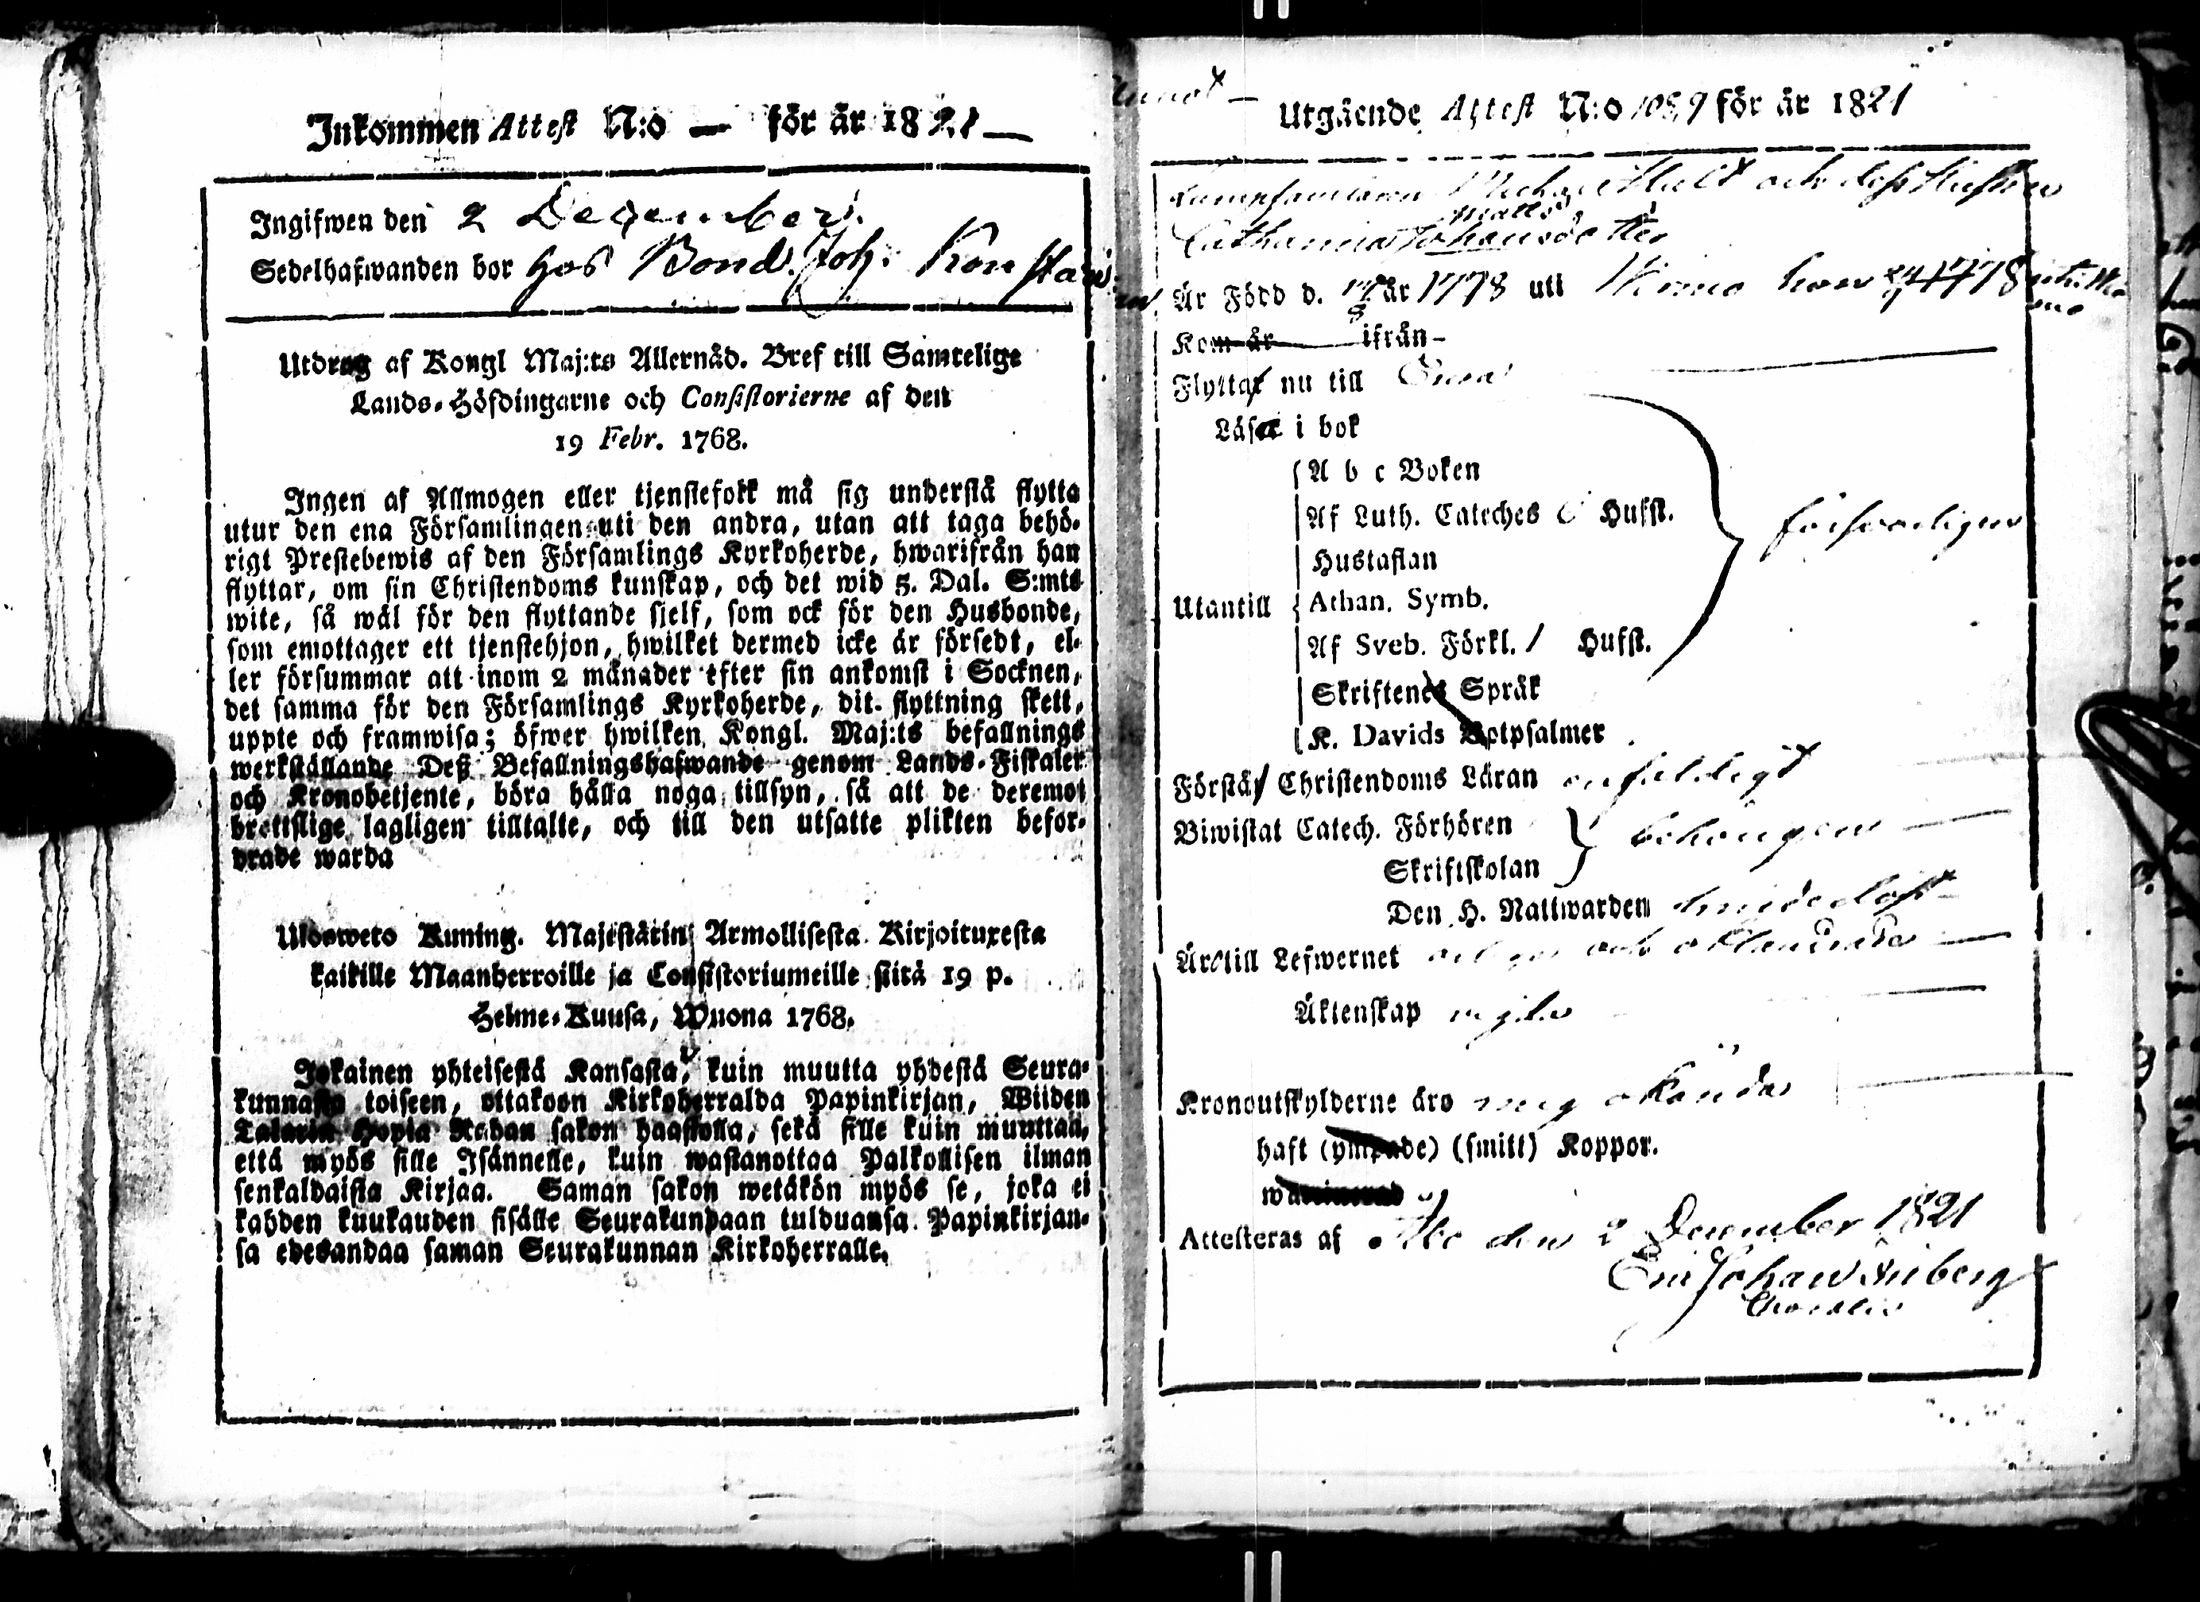 Inkommen Attest N:o — för år 1821 —
Ingifwen den 2 December.
Sedelhafwanden bor hos Bond. Joh. Kon
Utdrag af Kongl Maj:ts Allernåd. Bref till Samtelige
Lands-Höfdingarne och Consistorierne af den
19 Febr. 1768.
Ingen af Allmogen eller tjenstefolk må sig understå flytta
utur den ena Församlingen uti den andra, utan att taga behö-
rigt Prestebewis af den Församlings Kyrkoherde, hwarifrån han
flyttar, om sin Christendoms kunskap, och det wid 5. Dal. S:mts
wite, så wäl för den flyttande sjelf, som ock för den Husbonde,
som emottager ett tjenstehjon, hwilket dermed icke är försedt, el-
ler försummar att inom 2 månader efter sin ankomst i Socknen,
det samma för den Församlings Kyrkoherde, dit flyttning skett,
uppte och framwisa; öfwer hwilken Kongl. Maj:ts befallnings
werkställande Deß Befallningshafwande genom Lands-Fiskaler
och Kronobetjente, böra hålla noga tillsyn, så att de deremot
brottslige lagligen tilltalte, och till den utsatte plikten befor-
drade warda
Ulosweto Kuning. Majestätin Armollisesta Kirjoituxesta
kaikille Maanherroille ja Consistoriumeille siitä 19 p.
Helme-Kuusa, Wuona 1768.
Jokainen yhteisestä Kansasta, kuin muutta yhdestä Seura-
kunnasta toiseen, ottakoon Kirkoherralda Papinkirjan, Wiiden
Talarin Hopia Rahan sakon haastolla, sekä sille kuin muuttaa,
että myös sille Isännelle, kuin wastanottaa Palkollisen ilman
senkaldaista Kirjaa. Saman sakon wetäkön myös se, joka ei
kahden kuukauden sisälle Seurakundaan tulduansa Papinkirjan-
sa edesandaa saman Seurakunnan Kirkoherralle.
Utgående Attest N:o 1059 för år 1821
och dess Hustru
Catharina Johansdotter
Är Född d. 17/8 år 1778 uti Wirmo hon 1778
Kom år ifrån -
Flyttar nu till
Läser i bok
A b c Boken
Af Luth. Cateches 6 Hufst.
Hustaflan
försvarligen
Utantill Athan. Symb.
Af Sveb. Förkl. / Hufst.
Skriftenes Språk
K. Davids Botpsalmer
Förstår Christendoms Läran enfaldigt
Biwistat Catech. Förhören
behörigen
Skriftskolan
Den H. Nattwarden
Är till Lefwernet och oklandrade
Äktenskap
Kronoutskylderne äro mig okände
haft (ympade) (smitt) Koppor.
Attesteras af Åbo den 2 December 1821
Johan